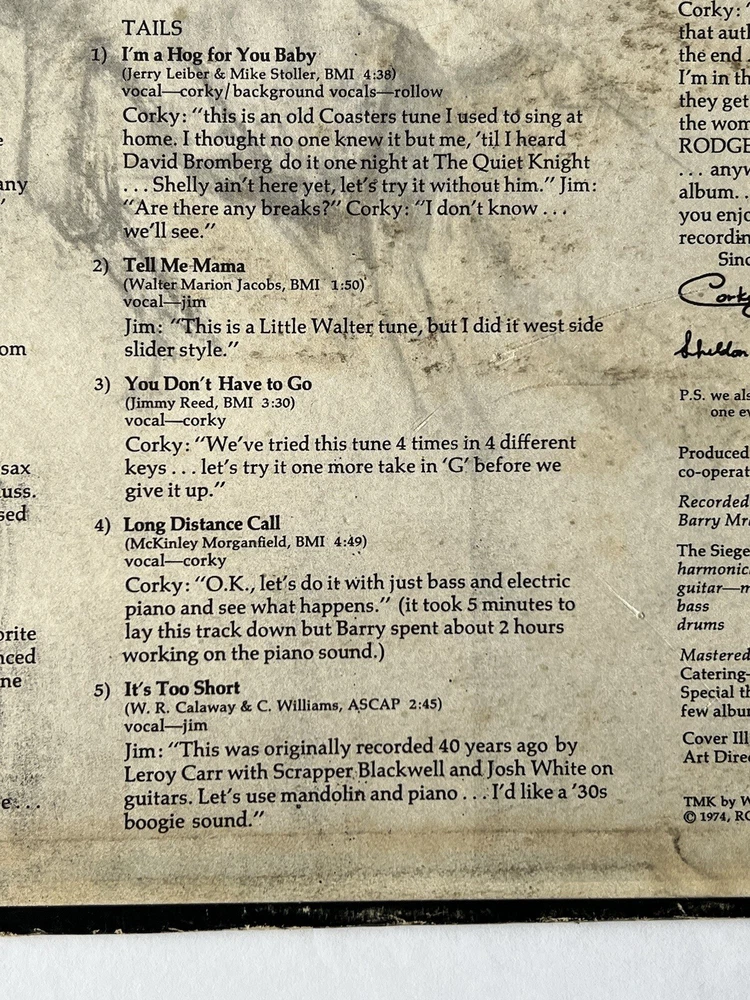 TAILS
1) I'm a Hog for You Baby
(Jerry Leiber & Mike Stoller, BMI 4:38)
vocal—corky/background vocals—rollow
Corky: "this is an old Coasters tune I used to sing at
home. I thought no one knew it but me, 'til I heard
David Bromberg do it one night at The Quiet Knight
. . . Shelly ain't here yet, let's try it without him." Jim:
"Are there any breaks?" Corky: "I don't know . . .
we'll see."
2) Tell Me Mama
(Walter Marion Jacobs, BMI 1:50)
vocal—jim
Jim: "This is a Little Walter tune, but I did it west side
slider style."
3) You Don't Have to Go
(Jimmy Reed, BMI 3:30)
vocal—corky
Corky: "We've tried this tune 4 times in 4 different
keys . . . let's try it one more take in 'G' before we
give it up."
4) Long Distance Call
(McKinley Morganfield, BMI 4:49)
vocal—corky
Corky: "O.K., let's do it with just bass and electric
piano and see what happens." (it took 5 minutes to
lay this track down but Barry spent about 2 hours
working on the piano sound.)
5) It's Too Short
(W. R. Calaway & C. Williams, ASCAP 2:45)
vocal—jim
Jim: "This was originally recorded 40 years ago by
Leroy Carr with Scrapper Blackwell and Josh White on
guitars. Let's use mandolin and piano . . . I'd like a '30s
boogie sound."
Corky: "
that auth
the end .
I'm in th
they get
the wom
RODGE
. . . anyw
album. .
you enjo
recordin
Sinc
Corky
Sheldon
P.S. we als
one ev
Produced
co-operat
Recorded
Barry Mr
The Siege
harmonic
guitar—m
bass
drums
Mastered
Catering-
Special th
few albu
Cover Ill
Art Dire
TMK by W
© 1974, RC
any
om
sax
uss.
sed
orite
nced
ne
e . . .